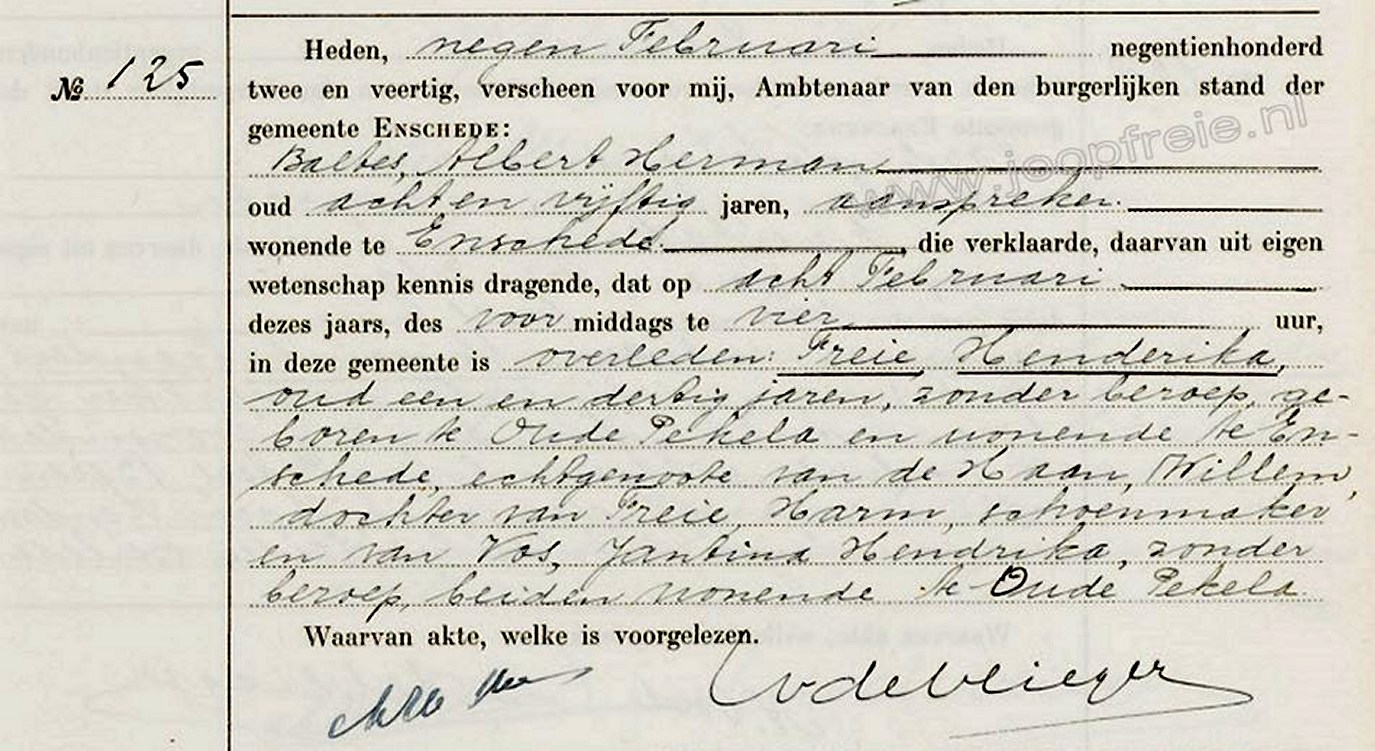 Heden, negen Februari negentienhonderd
№ 125 twee en veertig, verscheen voor mij, Ambtenaar van den burgerlijken stand der
gemeente ENSCHEDE:
www.joopfreie.nl
Baltes, Albert Herman
oud acht en vijftig jaren, aanspreker
wonende te Enschede, die verklaarde, daarvan uit eigen
wetenschap kennis dragende, dat op acht Februari
dezes jaars, des voor middags te vier uur,
in deze gemeente is overleden: Freie, Henderika,
oud een en dertig jaren, zonder beroep, ge-
boren te Oude Pekela en wonende te En-
schede, echtgenoote van de Haan, Willem,
dochter van Freie, Harm, schoenmaker
en van Vos, Jantina Hendrika, zonder
beroep, beiden wonende te Oude Pekela
Waarvan akte, welke is voorgelezen.
vdevlieger